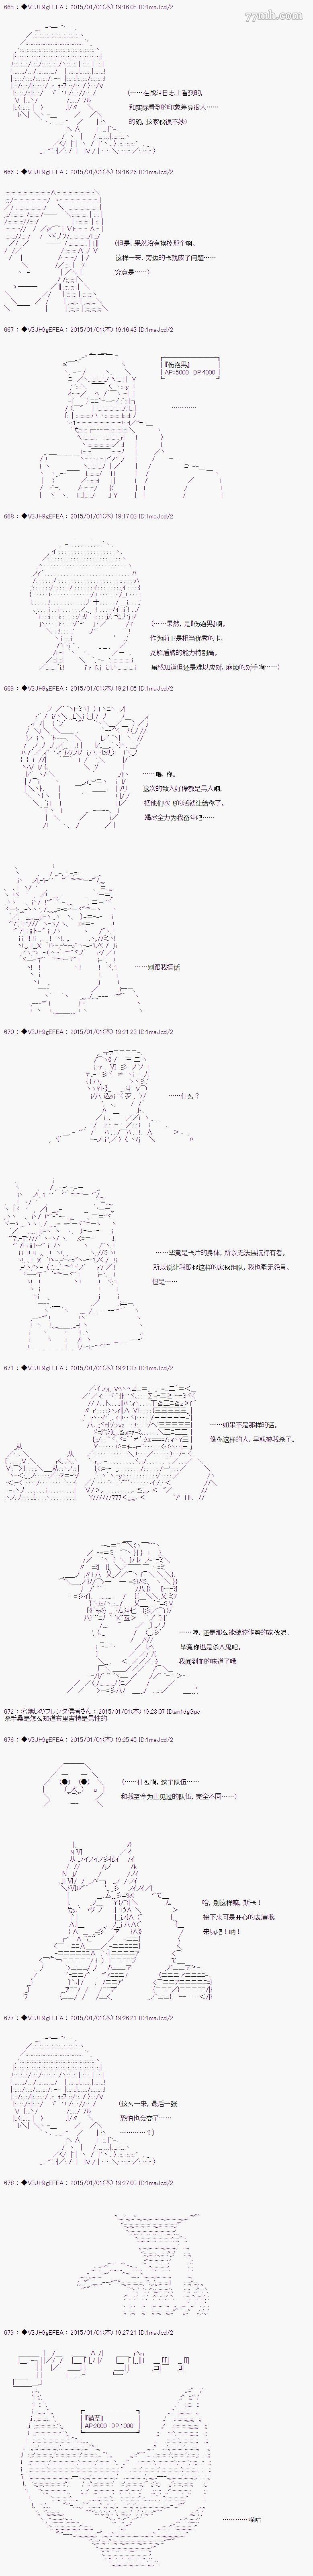 yymh.com
665 : ◆V3JH9gEFEA : 2015/01/01(木) 19:16:05 ID:1maJcd/2
(……在战斗日志上看到的,
和实际看到的印象差异很大……
的确, 这家伙很不妙)
666 : ◆V3JH9gEFEA : 2015/01/01(木) 19:16:26 ID:1maJcd/2
(但是, 果然没有换掉那个啊。
这样一来, 旁边的卡就成了问题……
究竟是……)
667 : ◆V3JH9gEFEA : 2015/01/01(木) 19:16:43 ID:1maJcd/2
『伤疤男』
AP:5000 DP:4000
…………
668 : ◆V3JH9gEFEA : 2015/01/01(木) 19:17:03 ID:1maJcd/2
(……果然, 是『伤疤男』啊。
作为前卫是相当优秀的卡,
瓦解盾牌的能力特别高。
虽然知道但还是难以应对, 麻烦的对手啊……)
669 : ◆V3JH9gEFEA : 2015/01/01(木) 19:21:05 ID:1maJcd/2
……嘿, 你。
这次的敌人好像都是男人啊。
把他们吹飞的活就让给你了。
竭尽全力为我奋斗吧……
……别跟我搭话
670 : ◆V3JH9gEFEA : 2015/01/01(木) 19:21:23 ID:1maJcd/2
……什么?
……毕竟是卡片的身体, 所以无法违抗持有者。
所以说让我跟你这样的家伙组队, 我也毫无怨言。
但是……
671 : ◆V3JH9gEFEA : 2015/01/01(木) 19:21:37 ID:1maJcd/2
……如果不是那样的话。
像你这样的人, 早就被我杀了。
……呵, 还是那么能装腔作势的家伙呢。
毕竟你也是杀人鬼吧。
我闻到血的味道了哦
672 : 名無しのフレンダ信者さん : 2015/01/01(木) 19:23:07 ID:an1dgt3po
杀手桑是怎么知道布里吉特是男性的
676 : ◆V3JH9gEFEA : 2015/01/01(木) 19:25:45 ID:1maJcd/2
(……什么啊, 这个队伍……
和我至今为止见过的队伍, 完全不同……)
哈, 别这样嘛, 斯卡!
接下来可是开心的表演哦。
来玩吧! 呐!
677 : ◆V3JH9gEFEA : 2015/01/01(木) 19:26:21 ID:1maJcd/2
(这么一来, 最后一张
恐怕也会变了……
…………?)
678 : ◆V3JH9gEFEA : 2015/01/01(木) 19:27:05 ID:1maJcd/2
679 : ◆V3JH9gEFEA : 2015/01/01(木) 19:27:21 ID:1maJcd/2
AP:2000 DP:1000
…………喵咕